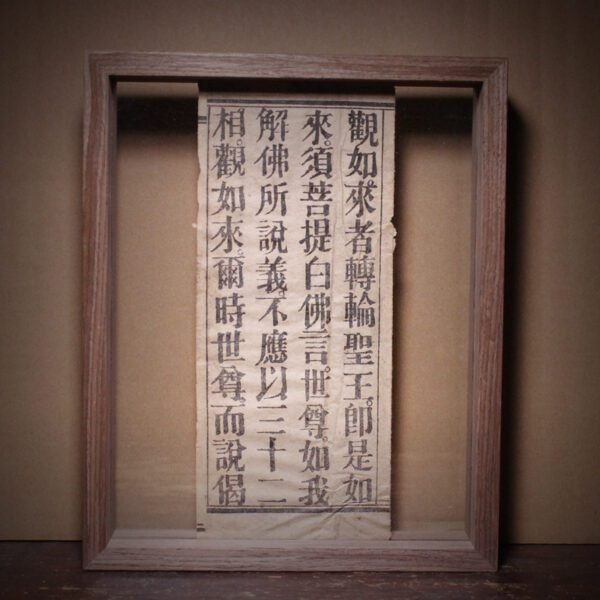 觀如來者轉輪聖王。卽是如
來。須菩提白佛言。世尊。如我
解佛所說義。不應以三十二
相。觀如來。爾時世尊。而說偈